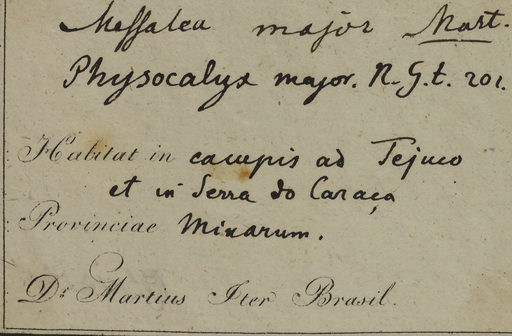 Messalea major Mart.
Physocalyx major. N. G. t. 201.
Habitat in campis ad Tejuco
et in Serra do Caraça
Provinciae Minarum.
Dr. Martius Iter Brasil.